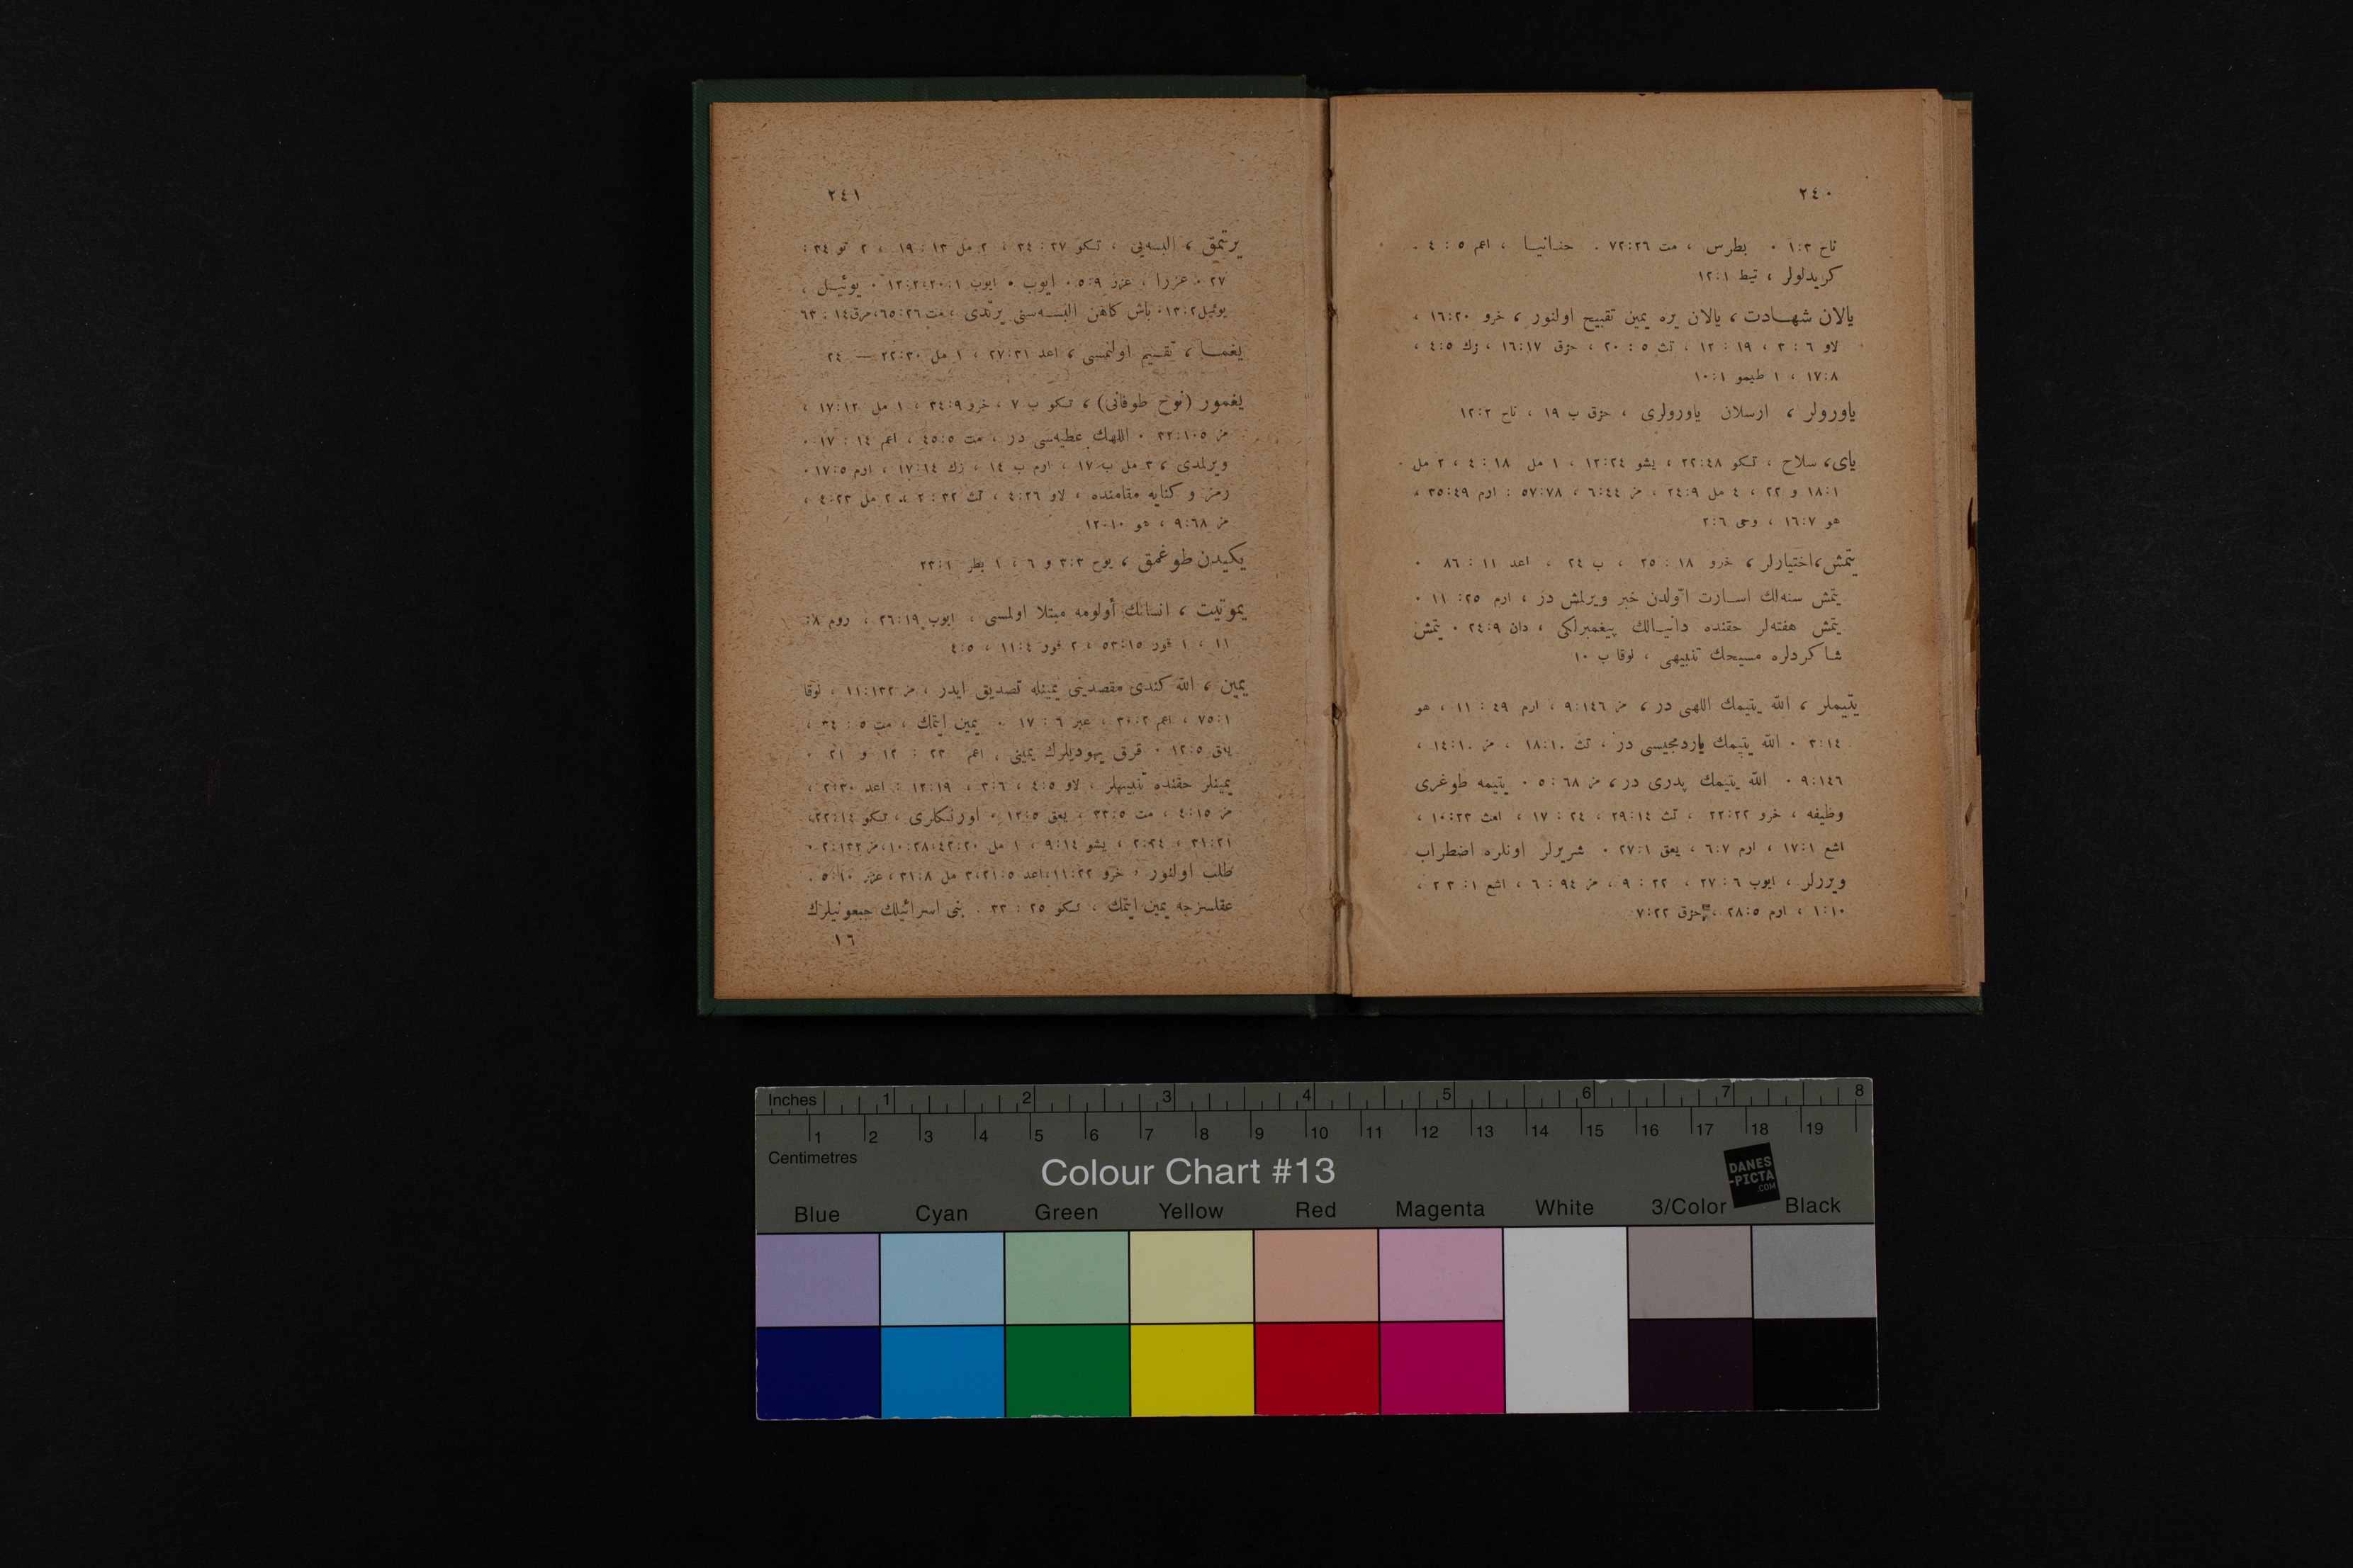 ٢٤٠
ناح ١:٣ ٠ بطرس ، مت ٧٢:٢٦ ٠ حنانيا ، اعم ٥ : ٤ ٠
كريدلولر ، تيط ١٢:١
يالان شهادت ، يالان يره يمين تقبيح اولنور ، خرو ١٦:٢٠ ،
لاو ٦ : ٣ ، ١٩ : ١٢ ، تث ٥ : ٢٠ ، حزق ١٦:١٧ ، زك ٤:٥ ،
١٧:٨ ، ١ طيمو ١٠:١
ياورولر ، ارسلان ياورولرى ، حزق ب ١٩ ، ناح ١٢:٢
ياى ، سلاح ، تكو ٢٢:٤٨ ، يشو ١٢:٢٤ ، ١ مل ١٨ : ٤ ، ٢ مل ٠
١٨:١ و ٢٢ ، ٤ مل ٢٤:٩ ، مز ٦:٤٤ ، ٥٧:٧٨ : ارم ٣٥:٤٩ ،
هو ١٦:٧ ، وحى ٢:٦
يتمش ، اختيارلر ، خرو ١٨ : ٢٥ ، ب ٢٤ ، اعد ١١ : ٨٦ ٠
يتمش سنه‌لك اسارت اولدن خبر ويرلمش در ، ارم ٢٥ : ١١ ٠
يتمش هفته‌لر حقنده دانيالك پيغمبرلكى ، دان ٢٤:٩ ٠ يتمش
شاكردلره مسيحك تنبيهى ، لوقا ب ١٠
يتيملر ، الله يتيمك اللهى در ، مز ٩:١٤٦ ، ارم ٤٩ : ١١ ، هو
٣:١٤ ٠ الله يتيمك ياردمجيسى در ، تث ١٨:١٠ ، مز ١٤:١٠ ،
٩:١٤٦ ٠ الله يتيمك پدرى در ، مز ٦٨ : ٥ ٠ يتيمه طوغرى
وظيفه ، خرو ٢٢:٢٢ ، تث ٢٩:١٤ ، ٢٤ : ١٧ ، امث ١٠:٢٣ ،
اشع ١٧:١ ، ارم ٦:٧ ، يعق ٢٧:١ ٠ شريرلر اونلره اضطراب
ويررلر ، ايوب ٦ : ٢٧ ، ٢٢ : ٩ ، مز ٩٤ : ٦ ، اشع ١ : ٢٣ ،
١:١٠ ، ارم ٢٨:٥ ، حزق ٧:٢٢
٢٤١
يرتمق ، البسه‌يى ، تكو ٣٧ : ٣٤ ، ٢ مل ١٣ : ١٩ ، ٢ تو ٣٤ :
٢٧ ٠ عزرا ، عزر ٥:٩ ٠ ايوب ٠ ايوب ٢٠:١ ، ١٢:٢ ٠ يوئيل ،
يوئيل ١٣:٢ ٠ باش كاهن البسه‌سنى يرتدى ، مت ٦٥:٢٦ ، مرق ١٤ : ٦٣
يغما ، تقسيم اولنمسى ، اعد ٢٧:٣١ ، ١ مل ٢٢:٣٠ — ٢٤
يغمور (نوح طوفانى) ، تكو ب ٧ ، خرو ٣٤:٩ ، ١ مل ١٧:١٢ ،
مز ٣٢:١٠٥ ٠ اللهك عطيه‌سى در ، مت ٤٥:٥ ، اعم ١٤ : ١٧ ٠
ويرلمدى ، ٣ مل ب ١٧ ، ارم ب ١٤ ، زك ١٧:١٤ ، ارم ١٧:٥ ٠
رمز و كنايه مقامنده ، لاو ٤:٢٦ ، تث ٣٢ : ٢ ، ٢ مل ٤:٢٣ ،
مز ٩:٦٨ ، هو ١٢:١٠
يكيدن طوغمق ، يوح ٣:٣ و ٦ ، ١ بطر ٢٣:١
يموتيت ، انسانك أولومه مبتلا اولمسى ، ايوب ٢٦:١٩ ، روم ٨:
١١ ، ١ قور ٥٣:١٥ ، ٢ قور ١١:٤ ، ٤:٥
يمين ، الله كندى مقصدينى يمينله تصديق ايدر ، مز ١١:١٣٢ ، لوقا
٧٥:١ ، اعم ٣٠:٢ ، عبر ٦ : ١٧ ٠ يمين ايتمك ، مت ٥ : ٣٤ ،
يعق ١٢:٥ ٠ قرق يهوديلرك يمينى ، اعم ٢٣ : ١٢ و ٢١ ٠
يمينلر حقنده تنبيهلر ، لاو ٤:٥ ، ٣:٦ ، ١٢:١٩ : اعد ٢:٣٠ ،
مز ٤:١٥ ، مت ٣٣:٥ ، يعق ١٢:٥ ٠ اورنكلرى ، تكو ٢٢:١٤ ،
٣١:٢١ ، ٢:٢٤ ، يشو ٩:١٤ ، ١ مل ٤٢:٢٠ ، ١٠:٢٨ ، مز ٢:١٣٢ ٠
طلب اولنور ، خرو ١١:٢٢ ، اعد ٢١:٥ ، ٣ مل ٣١:٨ ، عزر ٥:١٠ ٠
عقلسزجه يمين ايتمك ، تكو ٢٥ : ٣٣ ٠ بنى اسرائيلك جبعونيلرك
١٦
Inches 1 2 3 4 5 6 7 8
1 2 3 4 5 6 7 8 9 10 11 12 13 14 15 16 17 18 19
Centimetres
Colour Chart #13
DANES
-PICTA
.COM
Blue Cyan Green Yellow Red Magenta White 3/Color Black